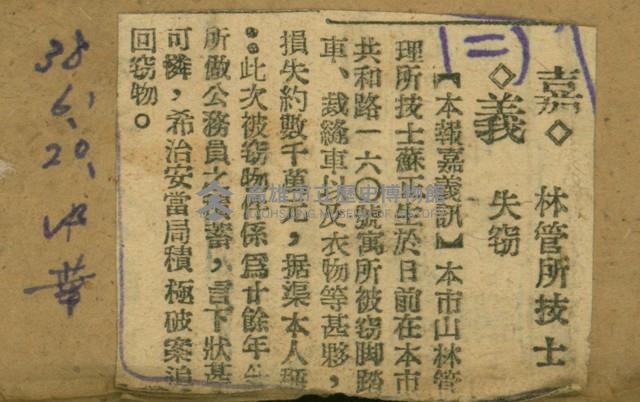 (二)
嘉◇
◇義
林管所技士
失窃
【本報嘉義訊】本市山林管
理所技士蘇正生於日前在本市
共和路一六〇號寓所被窃脚踏
車、裁縫車以及衣物等甚夥，
損失約數千萬元，据渠本人稱
：此次被窃物件係爲廿餘年生
所做公務員之積蓄，言下狀甚
可憐，希治安當局積極破案追
回窃物。
38.
6.
20.
中華
高雄市立歷史博物館
KAOHSIUNG MUSEUM OF HISTORY